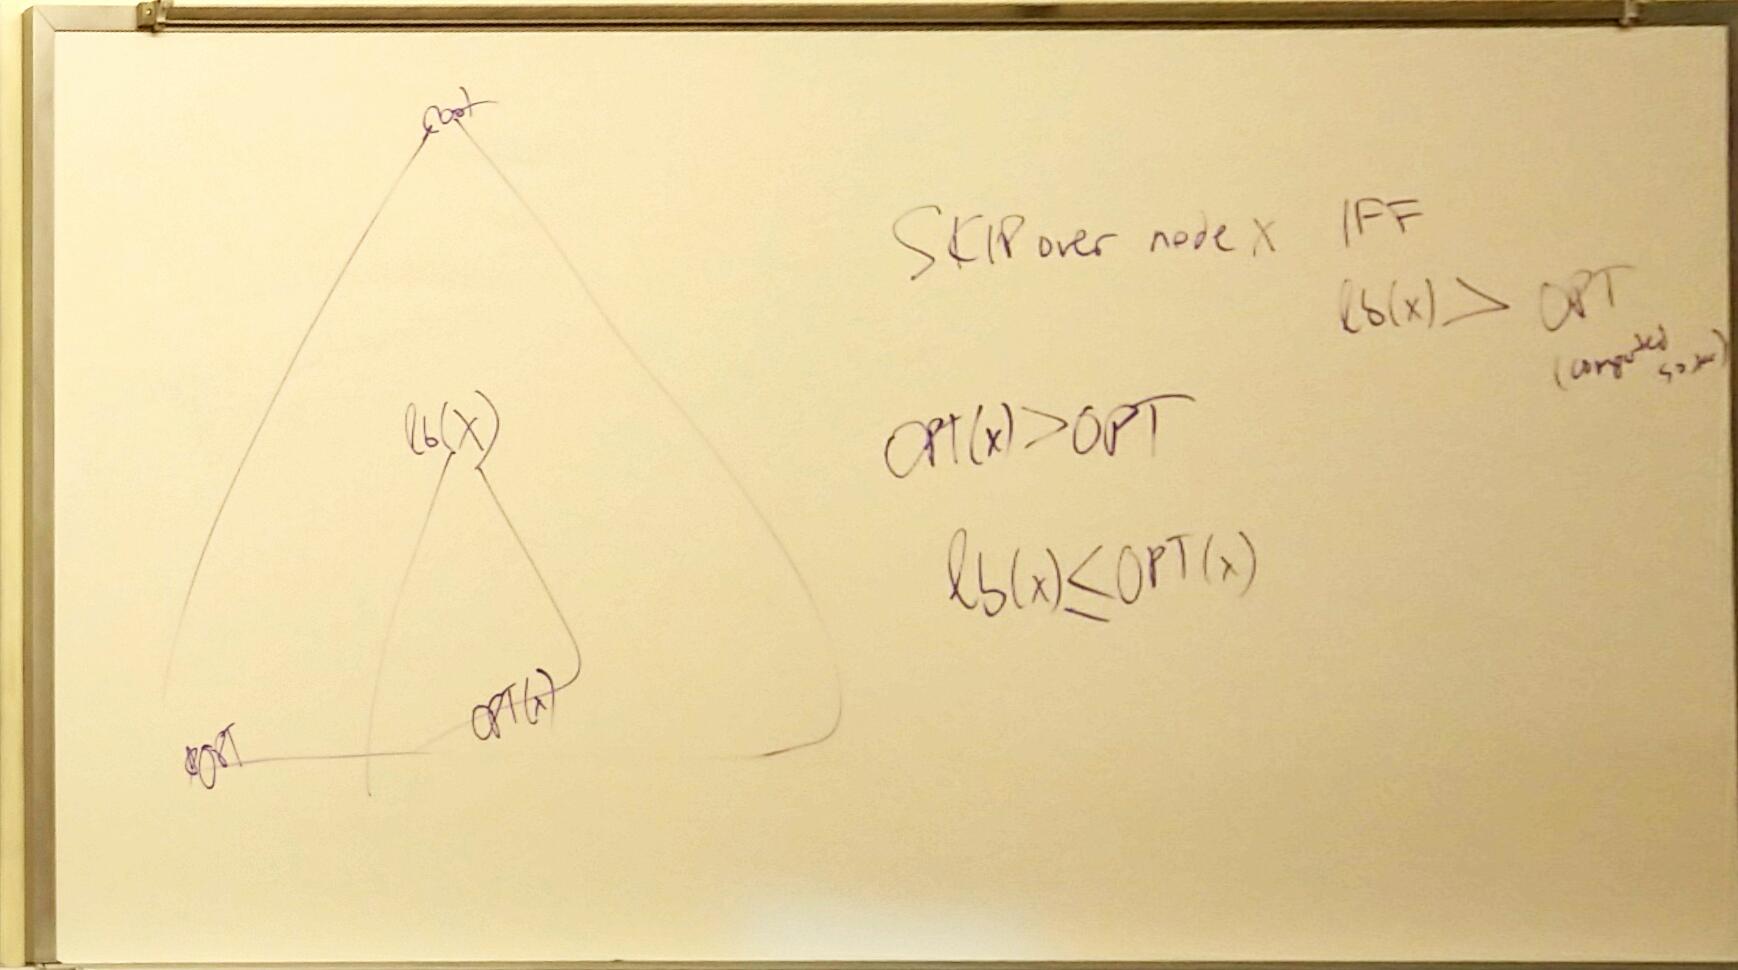 root
lb(x)
OPT(x)
OPT
SKIP over node x IFF
lb(x) > OPT
(computed so far)
OPT(x) > OPT
lb(x) ≤ OPT(x)